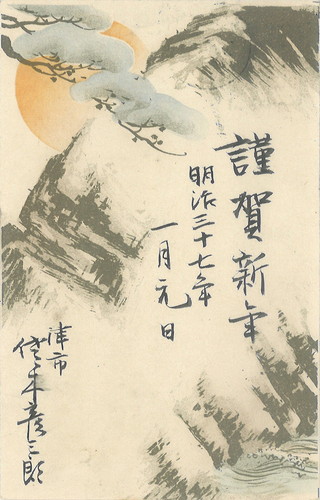 謹賀新年
明治三十七年
一月元日
津市
佐々木彦三郎